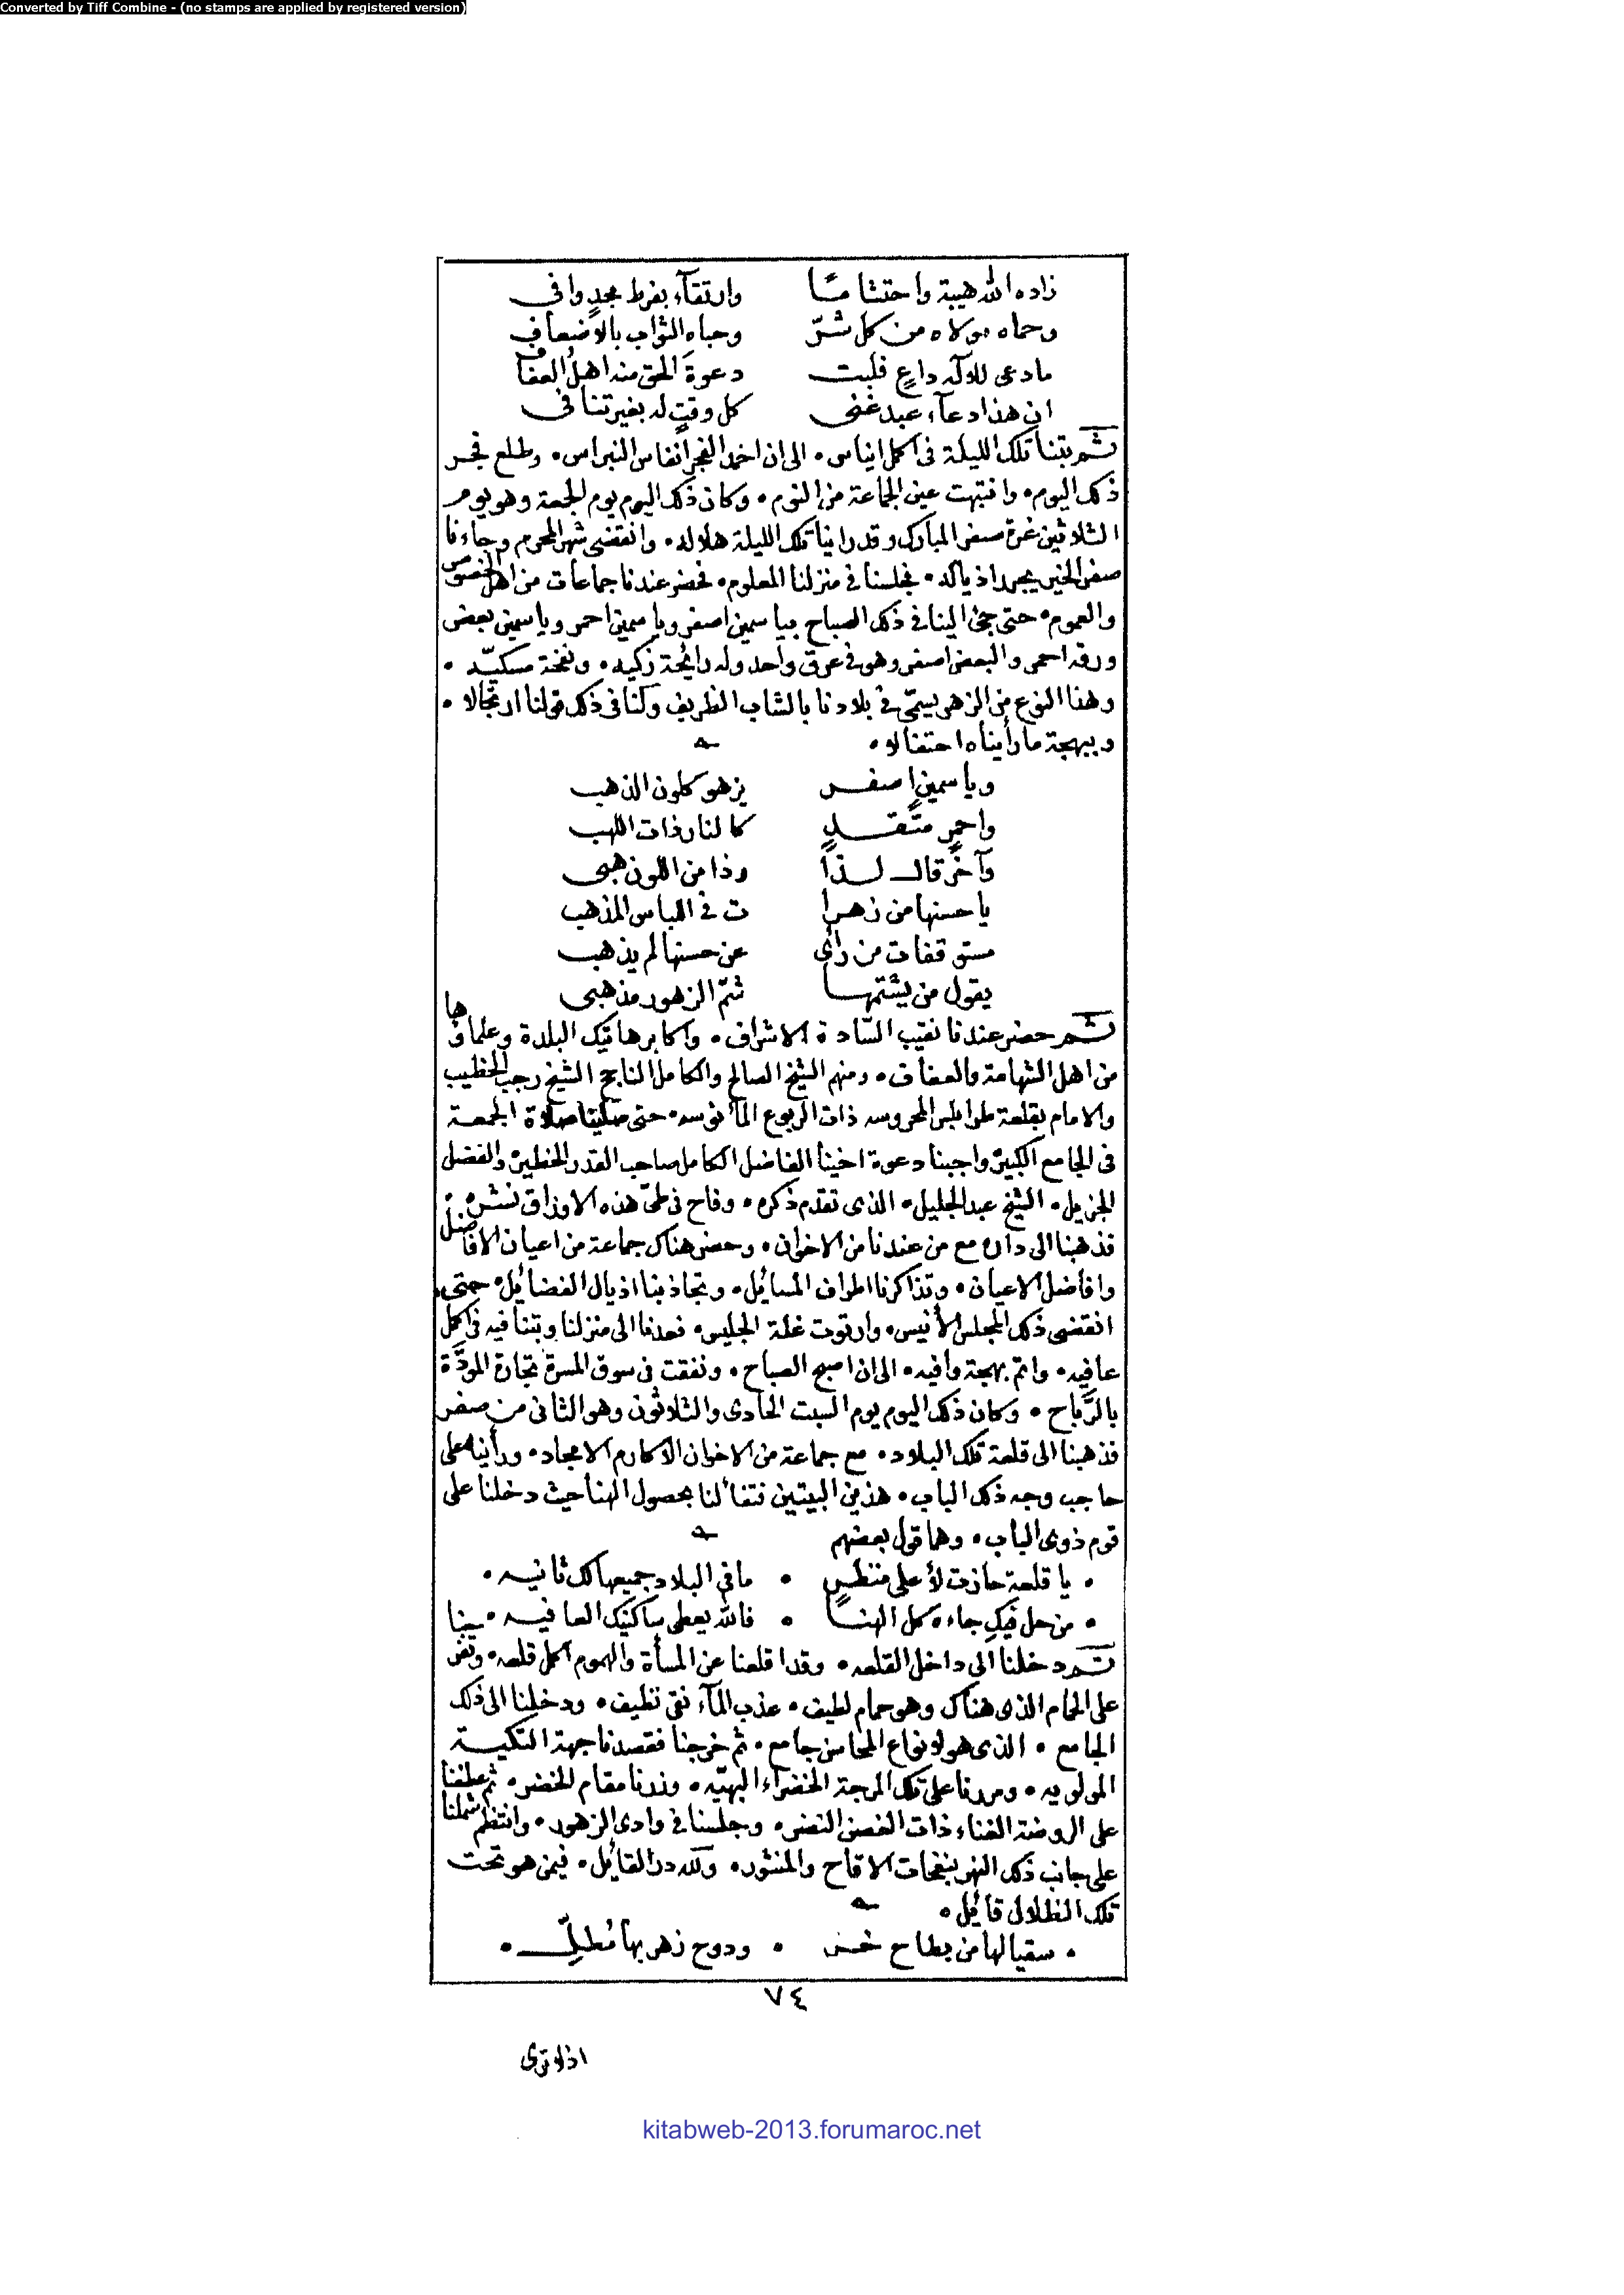 Converted by Tiff Combine - (no stamps are applied by registered version)
زاده الله هيبة واحتشاما وارتقآء بفرط مجدٍ وافى
وحماه مولاه من كل شرّ وحباه الثواب بالاضعافِ
مادعى للاله داعٍ فلبت دعوةَ الحق منه اهلُ العفاف
ان هذا دعآء عبد غنى كل وقتٍ له بغير تنافى
ثم بتنا تلك الليلة فى اكمل ايناس • الى ان اخمد الفجر أنفاس النبراس • وطلع فجر
ذلك اليوم • وانتبهت عين الجماعة من النوم • وكان ذلك اليوم يوم الجمعة وهو يوم
الثلاثين غرة صفر المبارك وقد راينا تلك الليلة هلاله • وانقضى شهر المحرم وجاءنا
صفر الخير يجر اذياله • فجلسنا فى منزلنا المعلوم • فحضر عندنا جماعات من اهل الخصوص
والعموم • حتى جئ الينا فى ذلك الصباح بياسمين اصفر وياسمين احمر وياسمين بعض
ورقه احمر والبعض اصفر وهو فى عرق واحد وله رائحة زكيه • ونفخة مسكيّه •
وهذا النوع من الزهر يسمّى فى بلادنا بالشاب الظريف ولنا فى ذلك قولنا ارتجالا •
وببهجة ما رأيناه احتفالا •
وياسمينٍ اصفر يزهو كلون الذهب
واحمرٍ متّقدٍ كالنار ذات اللهب
وآخرٌ قال لذا وذا من اللون هبى
يا حسنها من زهرا ت فى اللباس المذهب
مستوقفات من رأى عن حسنها لم يذهب
يقول من يشتمها شمّ الزهور مذهبى
ثم حضر عندنا نقيب السّادة الاشراف • واكابر هاتيك البلدة وعلماؤها
من اهل الشهامة والعفاف • ومنهم الشيخ الصالح والكامل الناجح الشيخ رجب الخطيب
والامام بقلعة طرابلس المحروسه ذات الربوع المأنوسه • حتى صلينا صلاة الجمعة
فى الجامع الكبير واجبنا دعوة اخينا الفاضل الكامل صاحب القدر الخطير والفضل
الجزيل • الشيخ عبد الجليل • الذى تقدم ذكره • وفاح فى طىّ هذه الاوراق نشره •
فذهبنا الى داره مع من عندنا من الاخوان • وحضر هناك جماعة من اعيان الافاضل
وافاضل الاعيان • وتذاكرنا اطراف المسائل • وتجاذبنا اذيال الفضائل • حتى
انقضى ذلك المجلس الأنيس • وارتوت غلة الجليس • فعدنا الى منزلنا وبتنا فيه فى اكمل
عافيه • واتم بهجة وافيه • الى ان اصبح الصباح • ونفقت فى سوق المسرة تجارة المودَّة
بالرَّباح • وكان ذلك اليوم يوم السبت الحادى والثلاثون وهو الثانى من صفر
فذهبنا الى قلعة تلك البلاد • مع جماعة من الاخوان الاكارم الامجاد • ورأينا على
حاجب وجه ذلك الباب • هذين البيتين فتفألنا بحصول الهنا حيث دخلنا على
قوم ذوى الباب • وهما قول بعضهم
• يا قلعة حازت لأعلى منظرٍ • مافى البلاد جميعها لك ثانيه •
• من حل فيكِ جاءه كل الهنا • فالله يعطى ساكنيك العافيه •
ثم دخلنا الى داخل القلعه • وقد اقلعنا عن المسأة والهموم اكمل قلعه • وتفرجنا
على الحمام الذى هناك وهو حمام لطيف • عذب المآء نقى نظيف • ودخلنا الى ذلك
الجامع • الذى هو لانواع المحاسن جامع • ثم خرجنا فقصدنا جهة التكية
المولويه • ومررنا على تلك المرجة الخضراء البهيّه • وزرنا مقام الخضر • ثم عطفنا
على الروضة الغناء ذات الغصن النضر • وجلسنا فى وادى الزهور • وانتظم شملنا
على جانب ذلك النهر بنفحات الاقاح والمنثور • ولله در القائل • فيمن هو تحت
تلك الظلال قائل •
• سقيا لها من بطاح خز • ودوح زهر بها مُطلِّ •
٧٤
اذلا ترى
kitabweb-2013.forumaroc.net